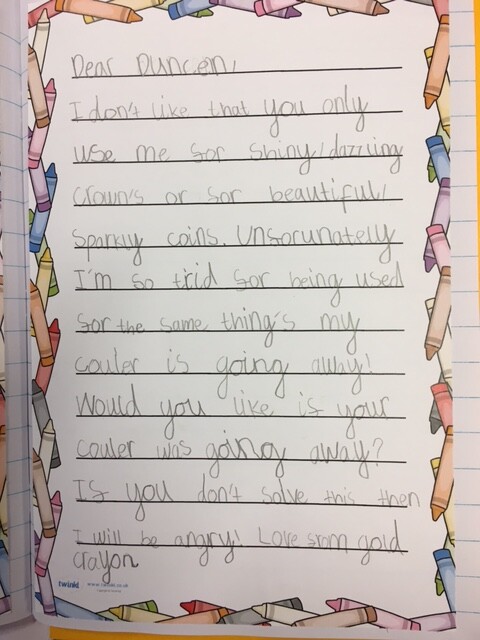 Dear Duncen,
I don't like that you only
use me for shiny/dazzling
crown's or for beautiful/
sparkly coins. Unforunately
I'm so trid for being used
for the same thing's my
couler is going away!
Would you like if your
couler was going away?
If you don't solve this then
I will be angry! Love from gold
crayon
twinkl www.twinkl.co.uk